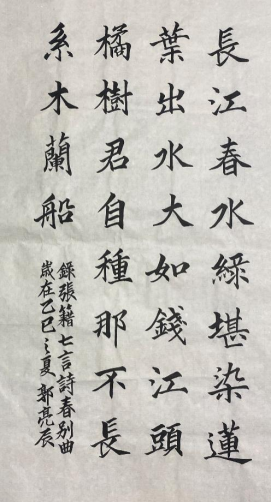 長江春水綠堪染蓮
葉出水大如錢江頭
橘樹君自種那不長
系木蘭船
錄張籍七言詩春別曲
歲在乙巳之夏郭亮辰